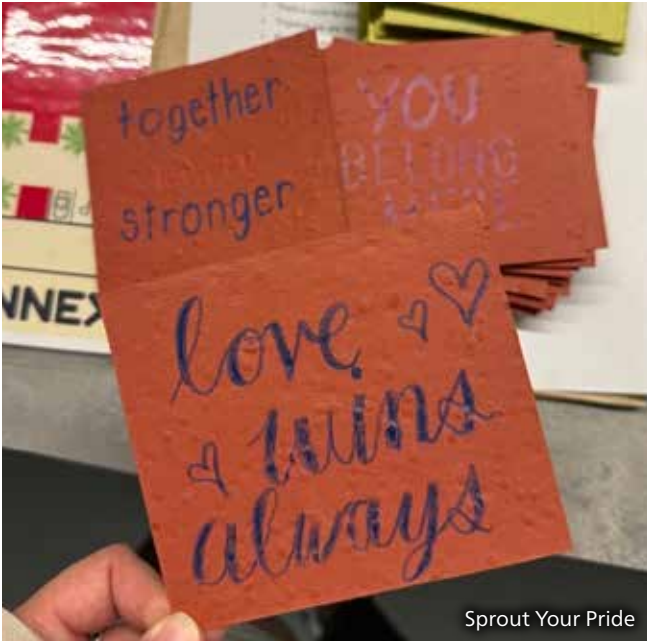 together
stronger
YOU
BELONG
HERE
love
wins
always
NNEX
Sprout Your Pride